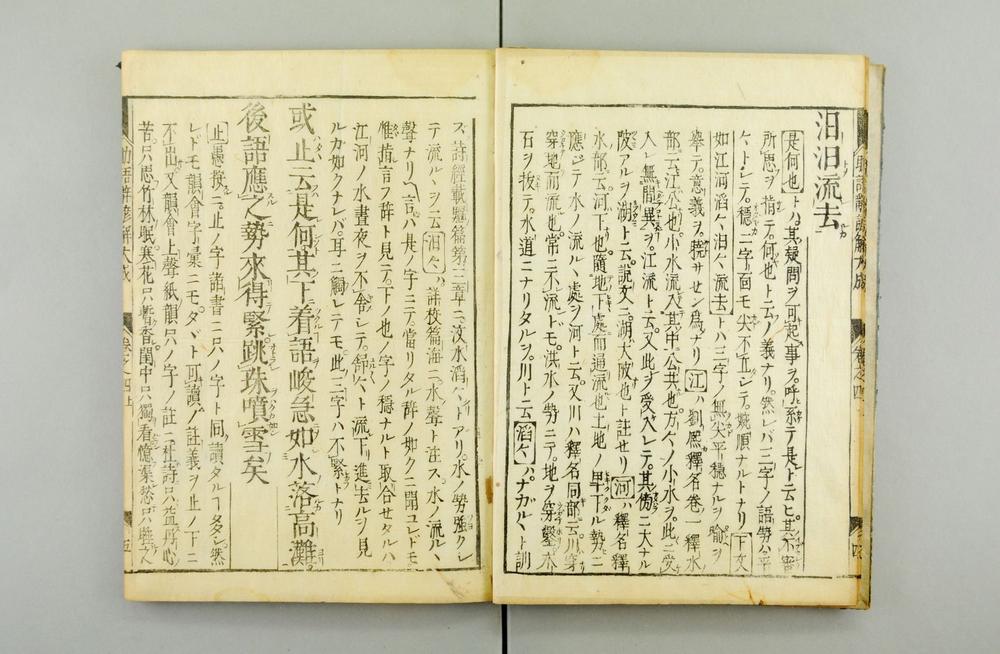 汩汩流去
是何也トハ其疑問ヲ可起事ヲ呼系テ是ト云ヒ其不審
所思ヲ指テ何也ト云ノ義ナリ。然レバ三字ノ語勢公平
ケトシテ。穏ニ字面モ尖不立シテ。婉順ナルトナリ下文
如江河滔〻汩〻流去トハ三字ノ無尖平穏ナルヲ喩ヲ
挙テ。意義ヲ。暁サセン為ナリ江ハ劉熙釋名卷一釋水
部云江公也。小水流入其中公共也方〻ノ小水ヲ。此ニ受
入レ無間異ヲ。江流ト云。又此ヲ受入レテ。其傍ニ大ナル
陂アルヲ湖ト云。説文ニ湖ハ大陂也ト註セリ河ハ釋名釋
水部云河下也。隨地下處而通流也土地ノ卑下ル勢ニ
應ジテ水ノ流ルヽ處ヲ河ト云。又川ハ釋名同部云川穿
穿地而流也。常ニ不流トモ。洪水ノ勢ニテ。地ヲ穿鑿木
石ヲ抜テ。水道ニナリタルヲ川ト云滔〻ハナガルヽト訓
ズ詩經載驅篇第三章ニ汶水滔〻トアリ。水ノ勢強クシ
テ流ルヽヲ云汩〻ハ詳校篇海ニ水聲ト注ス。水ノ流ルヽ
聲ナリ
惟指言フ辞ト見ニ。下ノ也ノ字ノ穏ナルト取合セタルハ
江河ノ水晝夜ヲ不舎シテ。 流下進去ルヲ見
ルカ如クナレバ。耳ニ觸レテモ。此三字ハ不緊トナリ
或止云是何其下着語峻急如水落高灘
後語應之勢來得緊跳珠噴雪矣
止愚按ニ。止ノ字諸書ニ只ノ字ト同讀タルコ多シ然
レドモ韻會字彙ニモ。タヾト可讀ノ註義ヲ止ノ下ニ
不出又韻會上聲紙韻只ノ字ノ註ニ杜詩只益丹心
苦只思竹林眠寒花只暫香閨中只獨看憶渠愁只睡又
助語辞 解大成
卷之四上
五